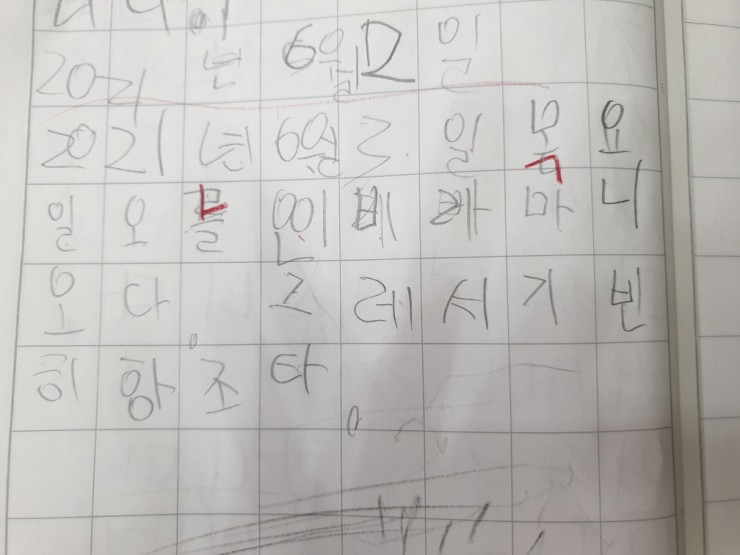 2021년 6월 2일
2021년 6월 3. 일 목요
일 오늘 비 마니
오다. 그레서 기빈
히 항조타.